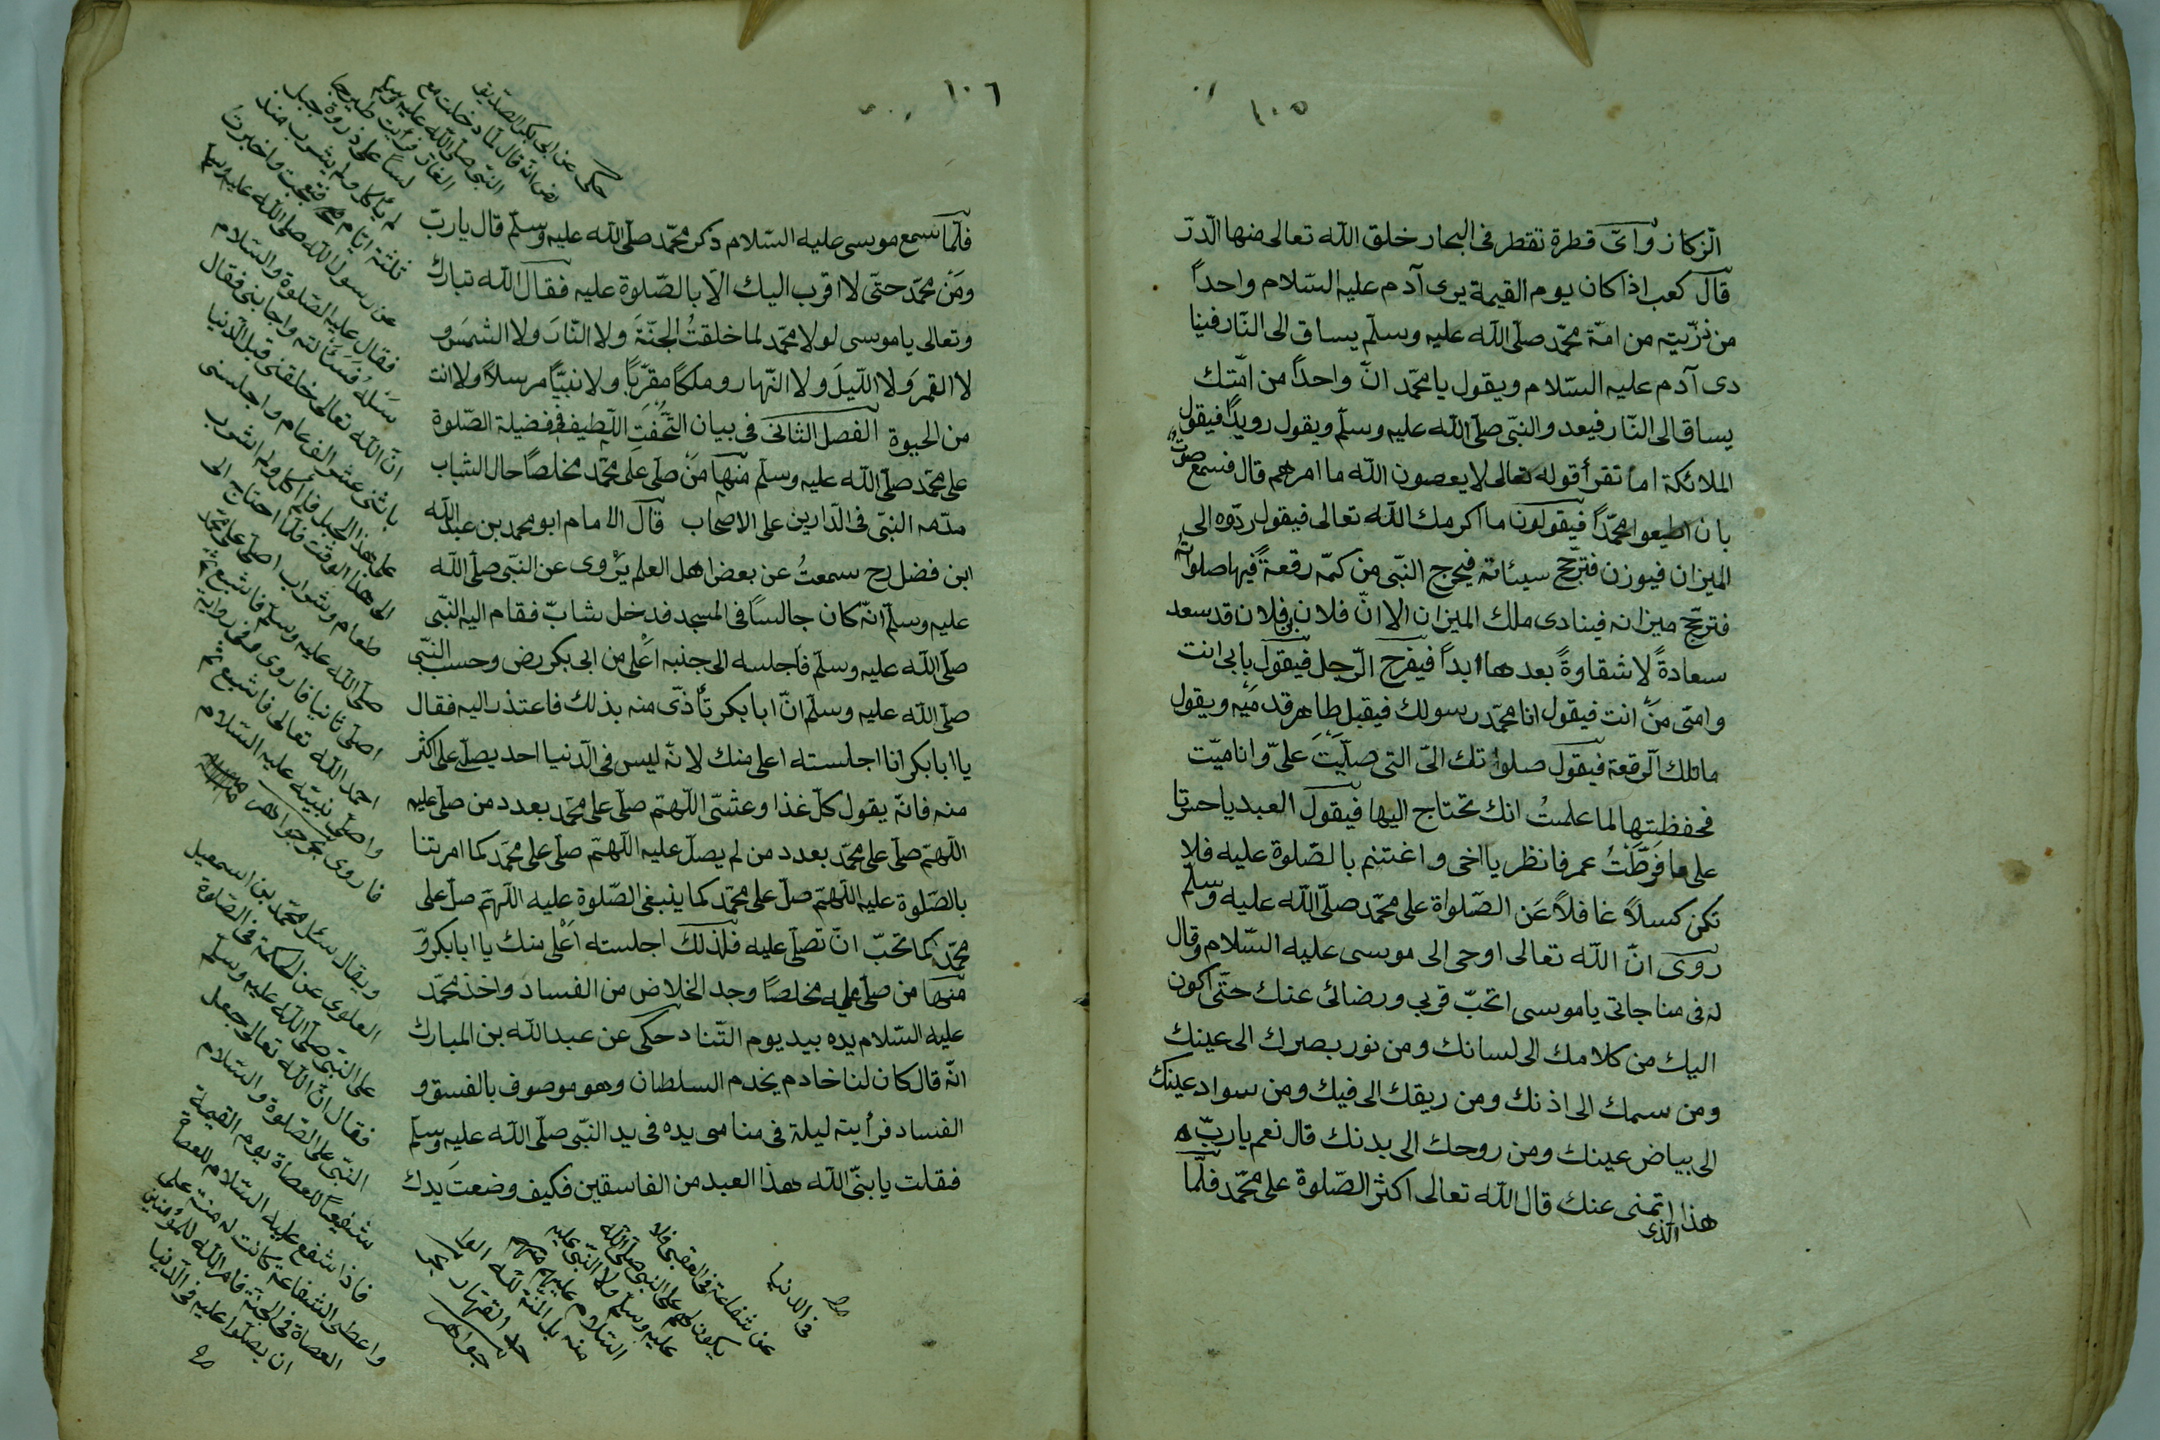 ١٠٥
الزكاز واىّ قطرة تقطر فى البحار خلق الله تعالى منها الدرّ
قال كعب اذا كان يوم القيمة يرى آدم عليه السّلام واحداً
من ذرّيته من امّة محمّد صلّى الله عليه وسلّم يساق الى النّار فينا
دى آدم عليه السّلام ويقول يا محمّد انّ واحداً من امّتك
يساق الى النّار فيعدو النبّى صلّى الله عليه وسلّم ويقول رويداً فيقول
الملائكة اما تقرأ قوله تعالى لا يعصون الله ما امرهم قال فسمع صوت
بان اطيعوا محمّداً فيقولون ما اكرمك الله تعالى فيقول ردّوه الى
الميزان فيوزن فترجّح سيئاته فيخرج النبّى من كمّه رقعةً فيها صلواته
فترجّح ميزانه فينادى ملك الميزان الا انّ فلان بن فلان قد سعد
سعادةً لا شقاوةً بعدها ابداً فيفرح الرّجل فيقول بابى انت
وامّى مَنْ انت فيقول انا محمّد رسولك فيقبل طاهر قدميه ويقول
ما تلك الرقعة فيقول صلواتك الىّ التى صلّيتَ علىّ وانا ميّت
فحفظتها لما علمتُ انك تحتاج اليها فيقول العبد يا حسرتا
على ما فرّطتُ عمر فانظر يا اخى واغتنم بالصّلوة عليه فلا
تكن كسلاً غافلاً عَن الصّلواة على محمّد صلّى الله عليه وسلّم
روى انّ الله تعالى اوحى الى موسى عليه السّلام وقال
له فى مناجاتى يا موسى اتحبّ قربى ورضائى عنك حتّى اكون
اليك من كلامك الى لسانك ومن نور بصرك الى عينك
ومن سمك الى اذنك ومن ريقك الى فيك ومن سواد عينك
الى بياض عينك ومن روحك الى بدنك قال نعم يا ربّ
هذا الذى اتمنى عنك قال الله تعالى اكثر الصّلوة على محمّد فلمّا
١٠٦
فلمّا سمع موسى عليه السّلام ذكر محمّد صلّى الله عليه وسلّم قال يا ربّ
ومَنْ محمّد حتّى لا اقرب اليك الّا بالصّلوة عليه فقال الله تبارك
وتعالى يا موسى لولا محمّد لما خلقتُ الجنّةَ ولا النّارَ ولا الشمسَ و
لا القمرَ ولا اللّيلَ ولا النّهار وملكاً مقرّباً ولا نبيّاً مرسلاً ولا انت
من الحيوة الفصل الثانى فى بيان التّحفت اللّطيفه فى فضيلة الصّلوة
على محمّد صلّى الله عليه وسلّم منها مَنْ صلّى على محمّد مخلصاً حال الشباب
النبّى فى الدّارين على الاصحاب قال الامام ابو محمد بن عبد الله
ابن فضل رح سمعتُ عن بعض اهل العلم يرْوى عن النبّى صلّى الله
عليه وسلّم انّه كان جالساً فى المسجد فدخل شابّ فقام اليه النبّى
صلّى الله عليه وسلّم فاَجلسه الى جنبه اَعْلى من ابى بكر رض وحسب النبّى
صلّى الله عليه وسلّم انّ ابا بكر تأذّى منه بذلك فاعتذر اليه فقال
يا ابا بكر انا اجلسته اعلى منك لانّه ليس فى الدّنيا احد يصلّى علىّ اكثر
منه فانّه يقول كلّ غذا وعشّى اللّهمّ صلّ على محمّد بعدد من صلّى عليه
اللّهمّ صلّ على محمّد بعدد من لم يصلّ عليه اللّهمّ صلّى على محمّد كما امرتنا
بالصّلوة عليه اللّهمّ صلّ على محمّد كما ينبغى الصّلوة عليه اللّهمّ صلّ على
محمّد كما تحبّ انّ تصلّى عليه فلذلك اجلسته اَعْلى منك يا ابا بكر و
منها من صلّى عليه مخلصاً وجد الخلاص من الفساد واخذ محمّد
عليه السّلام يده بيد يوم التّناد حكى عن عبد الله بن المبارك
انّه قال كان لنا خادم يخدم السلطان وهو موصوف بالفسق و
الفساد فرأيته ليلة فى منامى يده فى يد النبّى صلّى الله عليه وسلّم
فقلت يا بنّى الله هذا العبد من الفاسقين فكيف وضعتَ يدك
حكى عن ابى بكر الصّديق
رض انّه قال لمّا دخلت مع
النبّى صلّى الله عليه وسلم
الغار فرأيت طيرجا
لساً على ذروة جبل
لم يأكل ولم يشرب منذ
ثلثة ايّام فتعجبت واخبرت
عن رسول الله صلى الله عليه وسلم
فقال عليه الصّلوة والسّلام
سَلْهُ فسالته واجابنى فقال
انّ الله تعالى خلقنى قبل الدّنيا
باثنى عشر الف عام واجلسنى
على هذا الجبل فلم آكل ولم اشرب
الى هذا الوقت فلمّا احتاج الى
طعام وشراب اصلّى على محمّد
صلّى الله عليه وسلّم فاشبع ثمّ
اصلّى ثانيا فاروى وفى رواية
احمد الله تعالى فاشبع ثمّ
واصلّى نبيّه عليه السّلام
فاروى جواهر
ويقال سئل محمّد بن اسمعيل
العلوى عن الحكمة فى الصّلوة
على النبّى صلّى الله عليه وسلّم
فقال انّ الله تعالى جعل
النبّى على الصّلوة والسّلام
شفيعاً للعصاة يوم القيمة
فاذا شفع عليه السّلام للعصاة
واعطى الشفاعة كانت له منة على
العصاة فى الجنّة فامر الله للمؤمنين
ان يصلّوا عليه فى الدّنيا
فى الدنيا
عن شفاعة فى العقبى فلا
يكون لهم على النبى صلّى الله
عليه وسلم ولا النبّى عليه
السّلام عليهم
منه بل المنّة لله الوا
حد القهار
جواهر